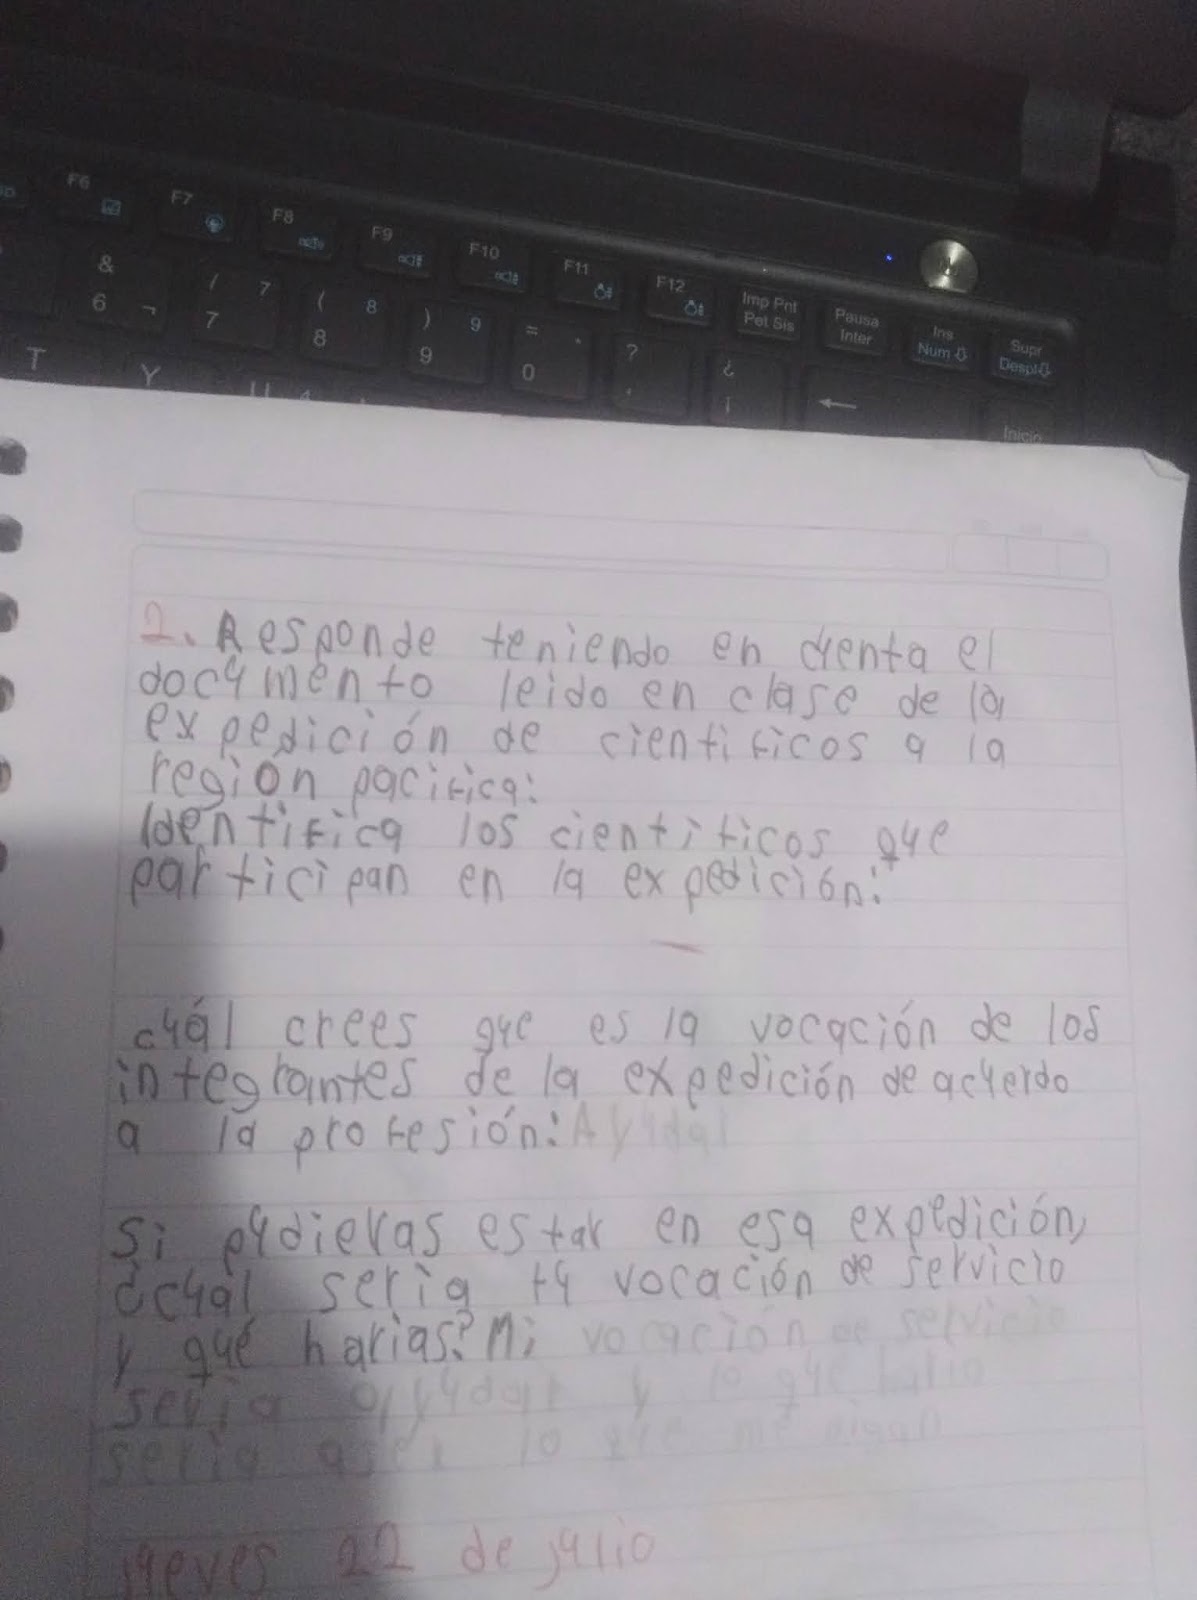 F6
F7
F8
F9
F10
F11
F12
Imp Pnt
Pet Sis
Pausa
Inter
Ins
Num
Supr
Despl
& 6 ¬
/ 7 7
( 8 8
) 9 9
= 0
? '
¿ ¡
Inicio
T
Y
U 4
2. Responde teniendo en cuenta el
documento leido en clase de la
expedición de cientificos a la
región pacifica:
Identifica los cientificos que
participan en la expedición:
cuál crees que es la vocación de los
integrantes de la expedición de acuerdo
a la profesión: Ayudar
Si pudieras estar en esa expedición,
¿cuál seria tu vocación de servicio
y qué harias? Mi vocación de servicio
seria ayudar y lo que haria
seria aser lo que me digan
jueves 22 de julio